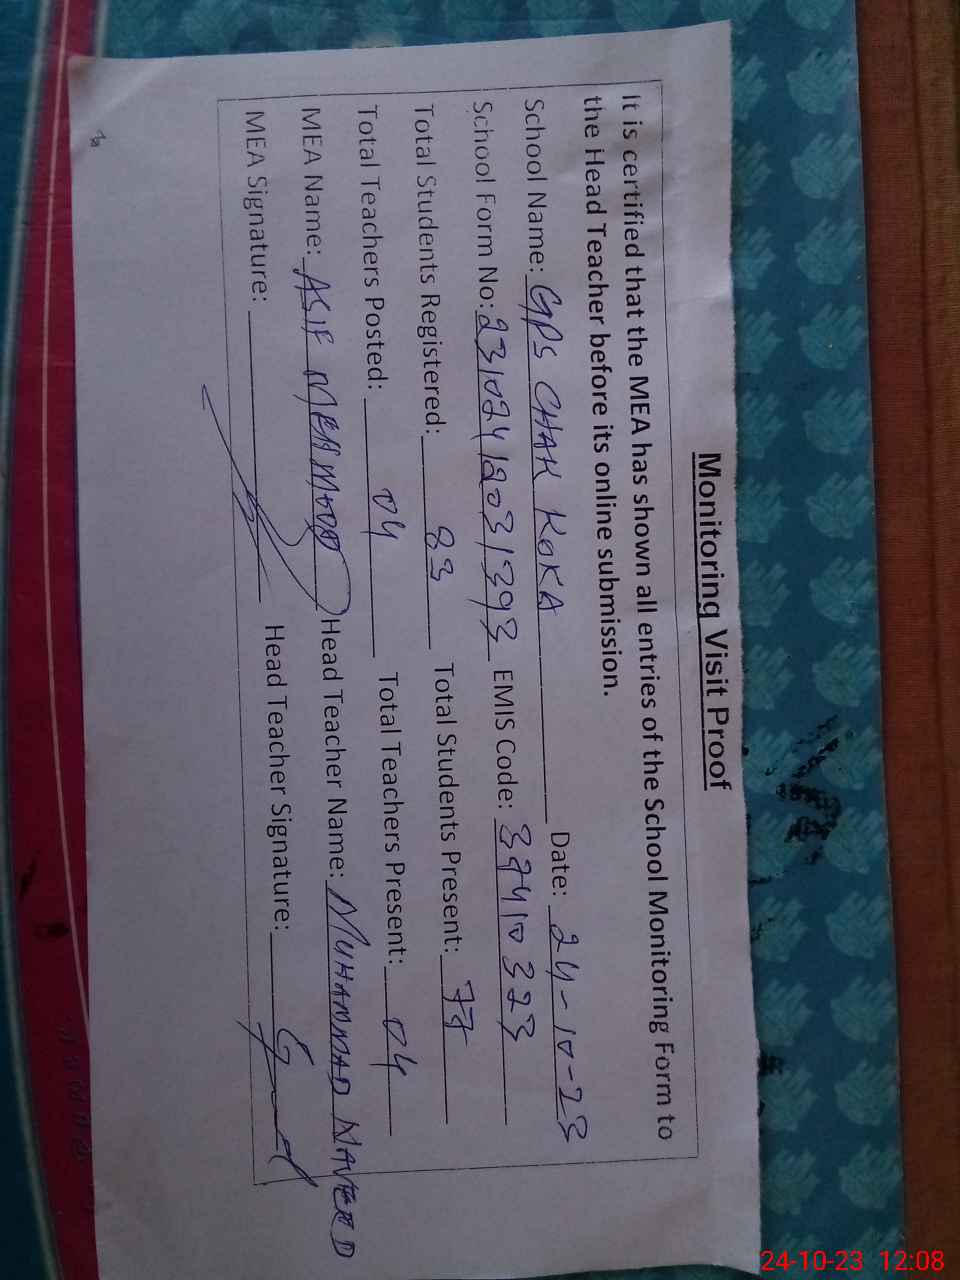 Monitoring Visit Proof
It is certified that the MEA has shown all entries of the School Monitoring Form to
the Head Teacher before its online submission.
School Name: GPS CHAK KOKA Date: 24-10-23
School Form No: 23102418031393 EMIS Code: 39410323
Total Students Registered: 83 Total Students Present: 77
Total Teachers Posted: 04 Total Teachers Present: 04
MEA Name: ASIF MEHMOOD Head Teacher Name: MUHAMMAD NAVEED
MEA Signature: Head Teacher Signature:
24-10-23 12:08